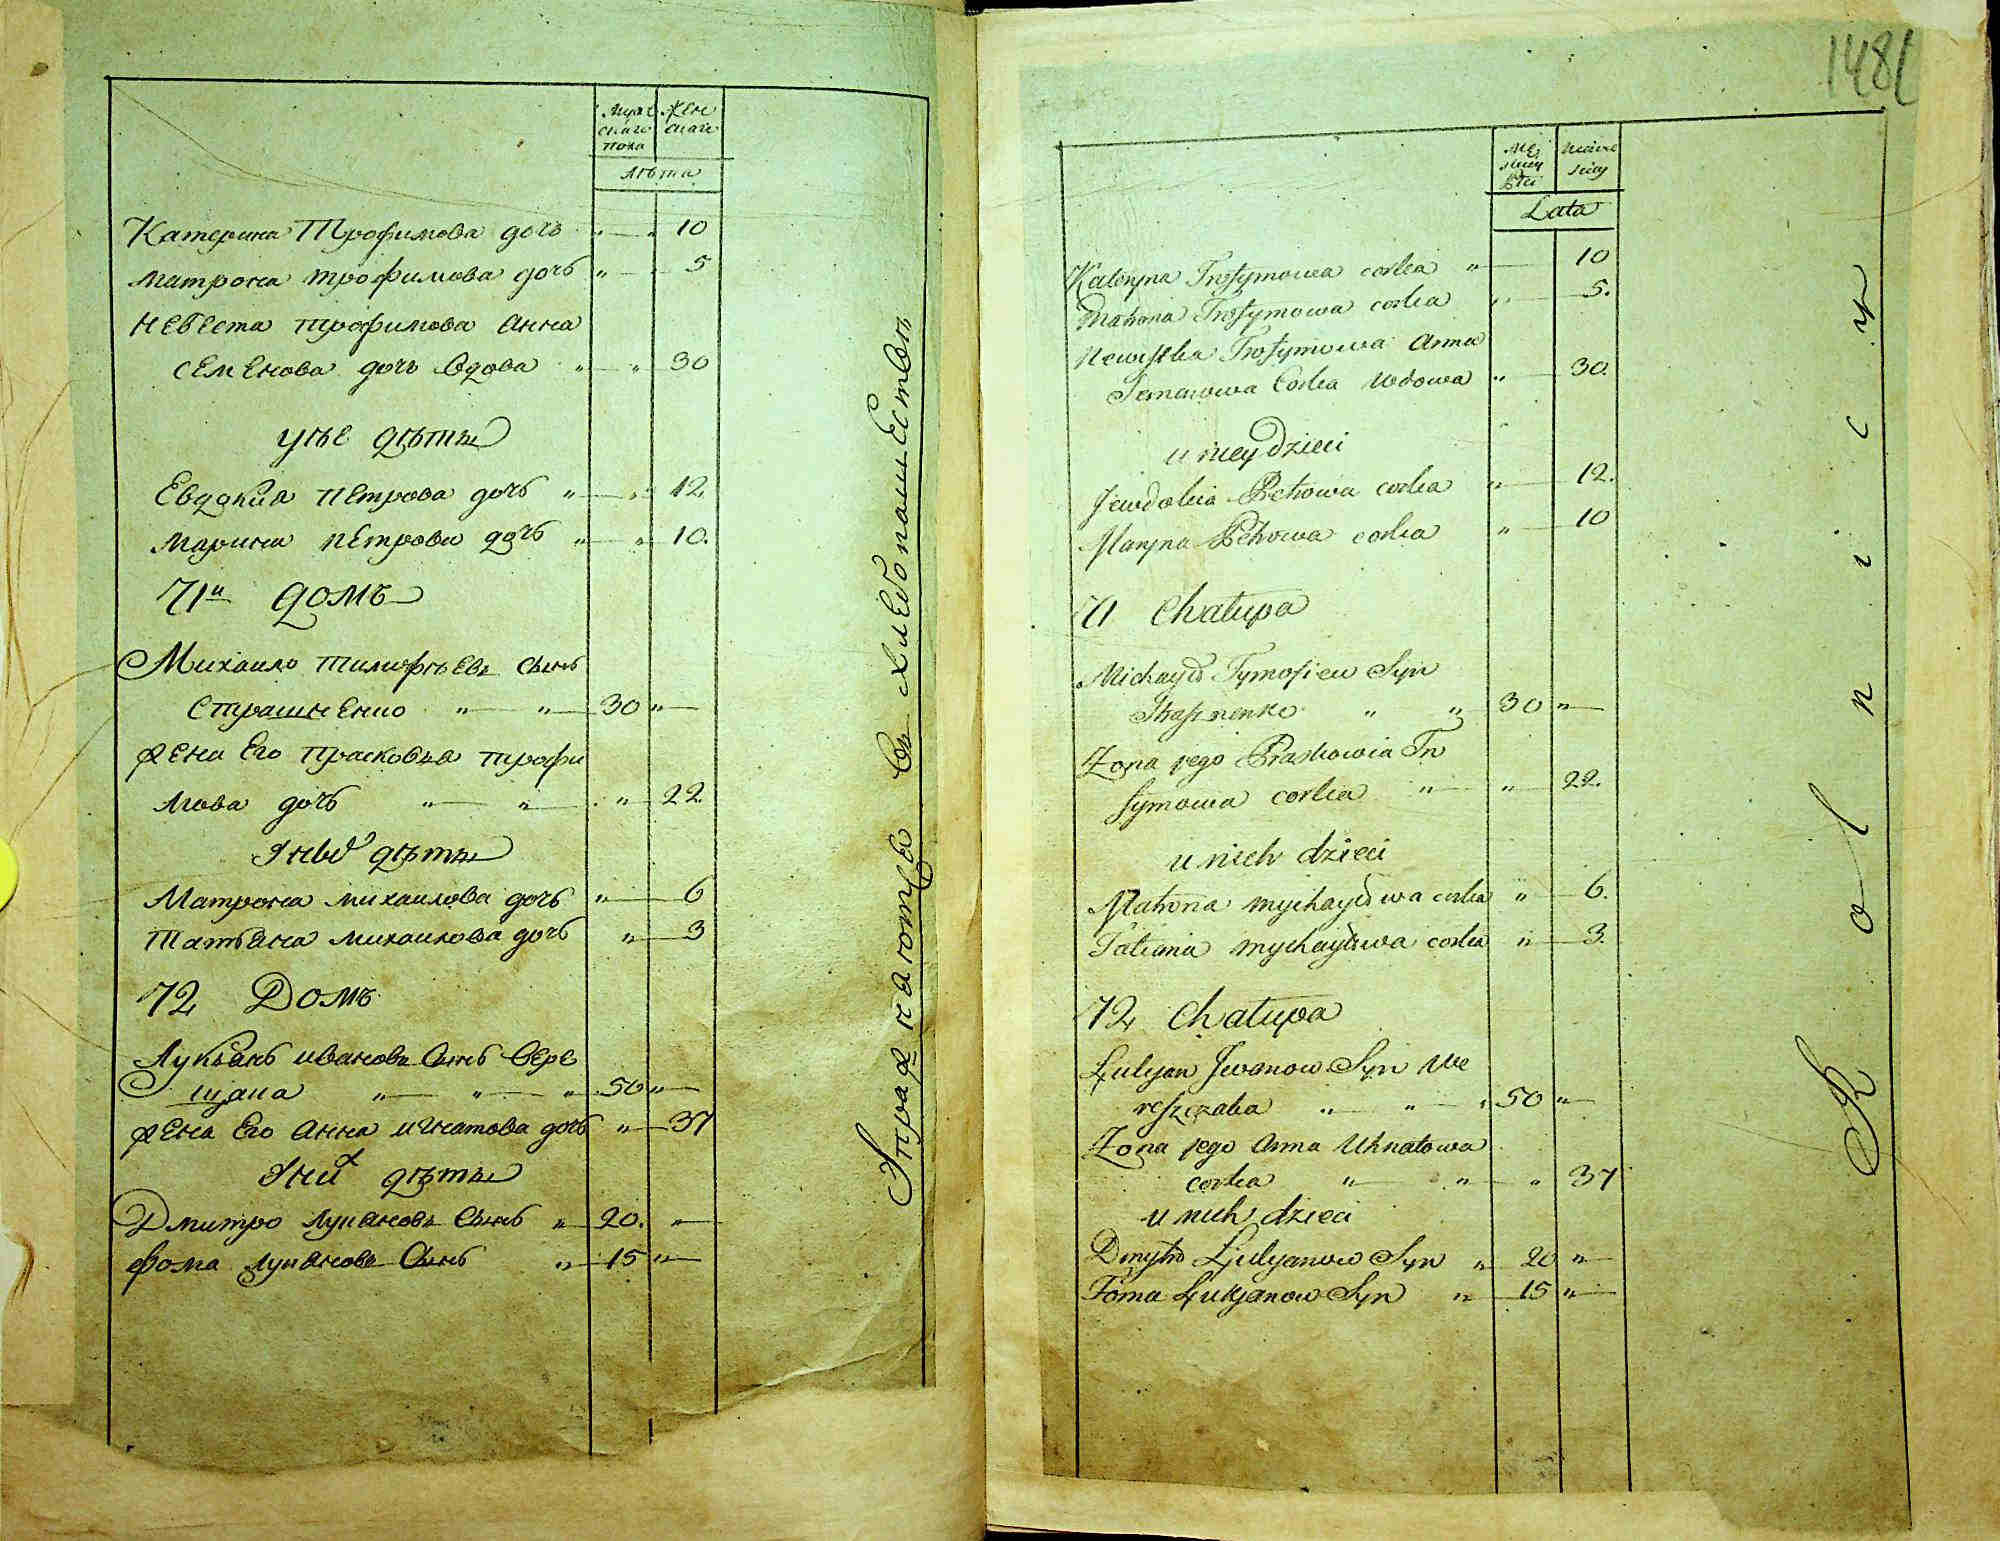 Мужескаго пола
Женскаго
Лѣта
Катерина Трофимова дочь " — " 10
Матрона Трофимова дочь " — 5
Невеста Трофимова Анна
Семенова дочь вдова " — " 30
у нѣе дѣти
Евдокия Петрова дочь " — " 12
Марина Петрова дочь " — " 10.
71й Домъ
Михаило Тимофѣевъ Сынъ
Страшненко " — " — 30 " —
Жена Его Прасковья Трофи
мова дочь " — " — " 22.
У ныхъ дѣти
Матрона Михаилова дочь " — 6
Татьяна Михаилова дочь " — 3
72 Домъ
Лукьянъ Ивановъ Сынъ Вере
щака " — " — " 50 " —
Жена Его Анна Игнатова дочь " — 37
У них дѣти
Дмитро Лукяновъ Сынъ " 20. " —
Фома Лукяновъ Сынъ " — 15 " —
Упражняютца въ хлебопашествѣ
1481
Męz
skiey
płci
Lata
Kateryna Trofymowa corka " — 10
Matrona Trofymowa corka " — 5.
Newistka Trofymowa Anna
Semenowa Corka Wdowa " — 30.
u niey dzieci
Jewdokia Petrowa corka " — 12.
Maryna Petrowa corka " — 10
71 Chałupa
Michayło Tymofiew Syn
Strasznenko " " 30 " —
Żona jego Praskowia Tro
fymowa corka " — " — 22.
u nich dzieci
Matrona Mychayłowa corka " — 6.
Tatiana Mychayłowa corka " — 3.
72 Chałupa
Łukjan Jwanow Syn We
reszczaka " " — " 50 " —
Żona jego Anna Uhnatowa
corka " — " — " 37
u nich dzieci
Dmytro Łukyanow Syn " 20 " —
Foma Łukjanow Syn " — 15 " —
Rolnicy